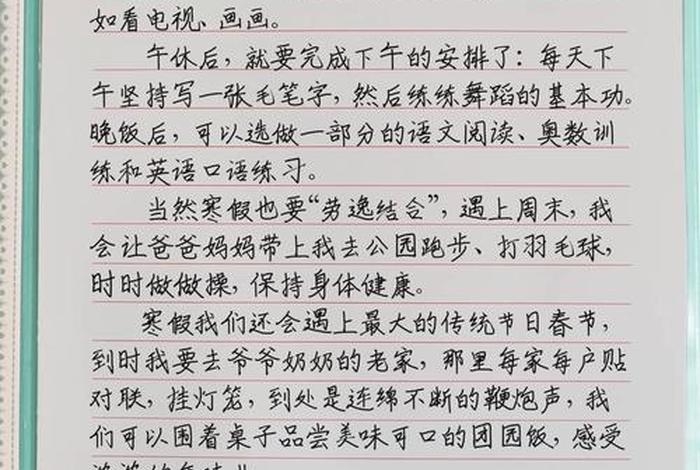 如看电视、画画。
午休后，就要完成下午的安排了：每天下
午坚持写一张毛笔字，然后练练舞蹈的基本功。
晚饭后，可以选做一部分的语文阅读、奥数训
练和英语口语练习。
当然寒假也要“劳逸结合”，遇上周末，我
会让爸爸妈妈带上我去公园跑步、打羽毛球，
时时做做操，保持身体健康。
寒假我们还会遇上最大的传统节日春节，
到时我要去爷爷奶奶的老家，那里每家每户贴
对联，挂灯笼，到处是连绵不断的鞭炮声，我
们可以围着桌子品尝美味可口的团园饭，感受